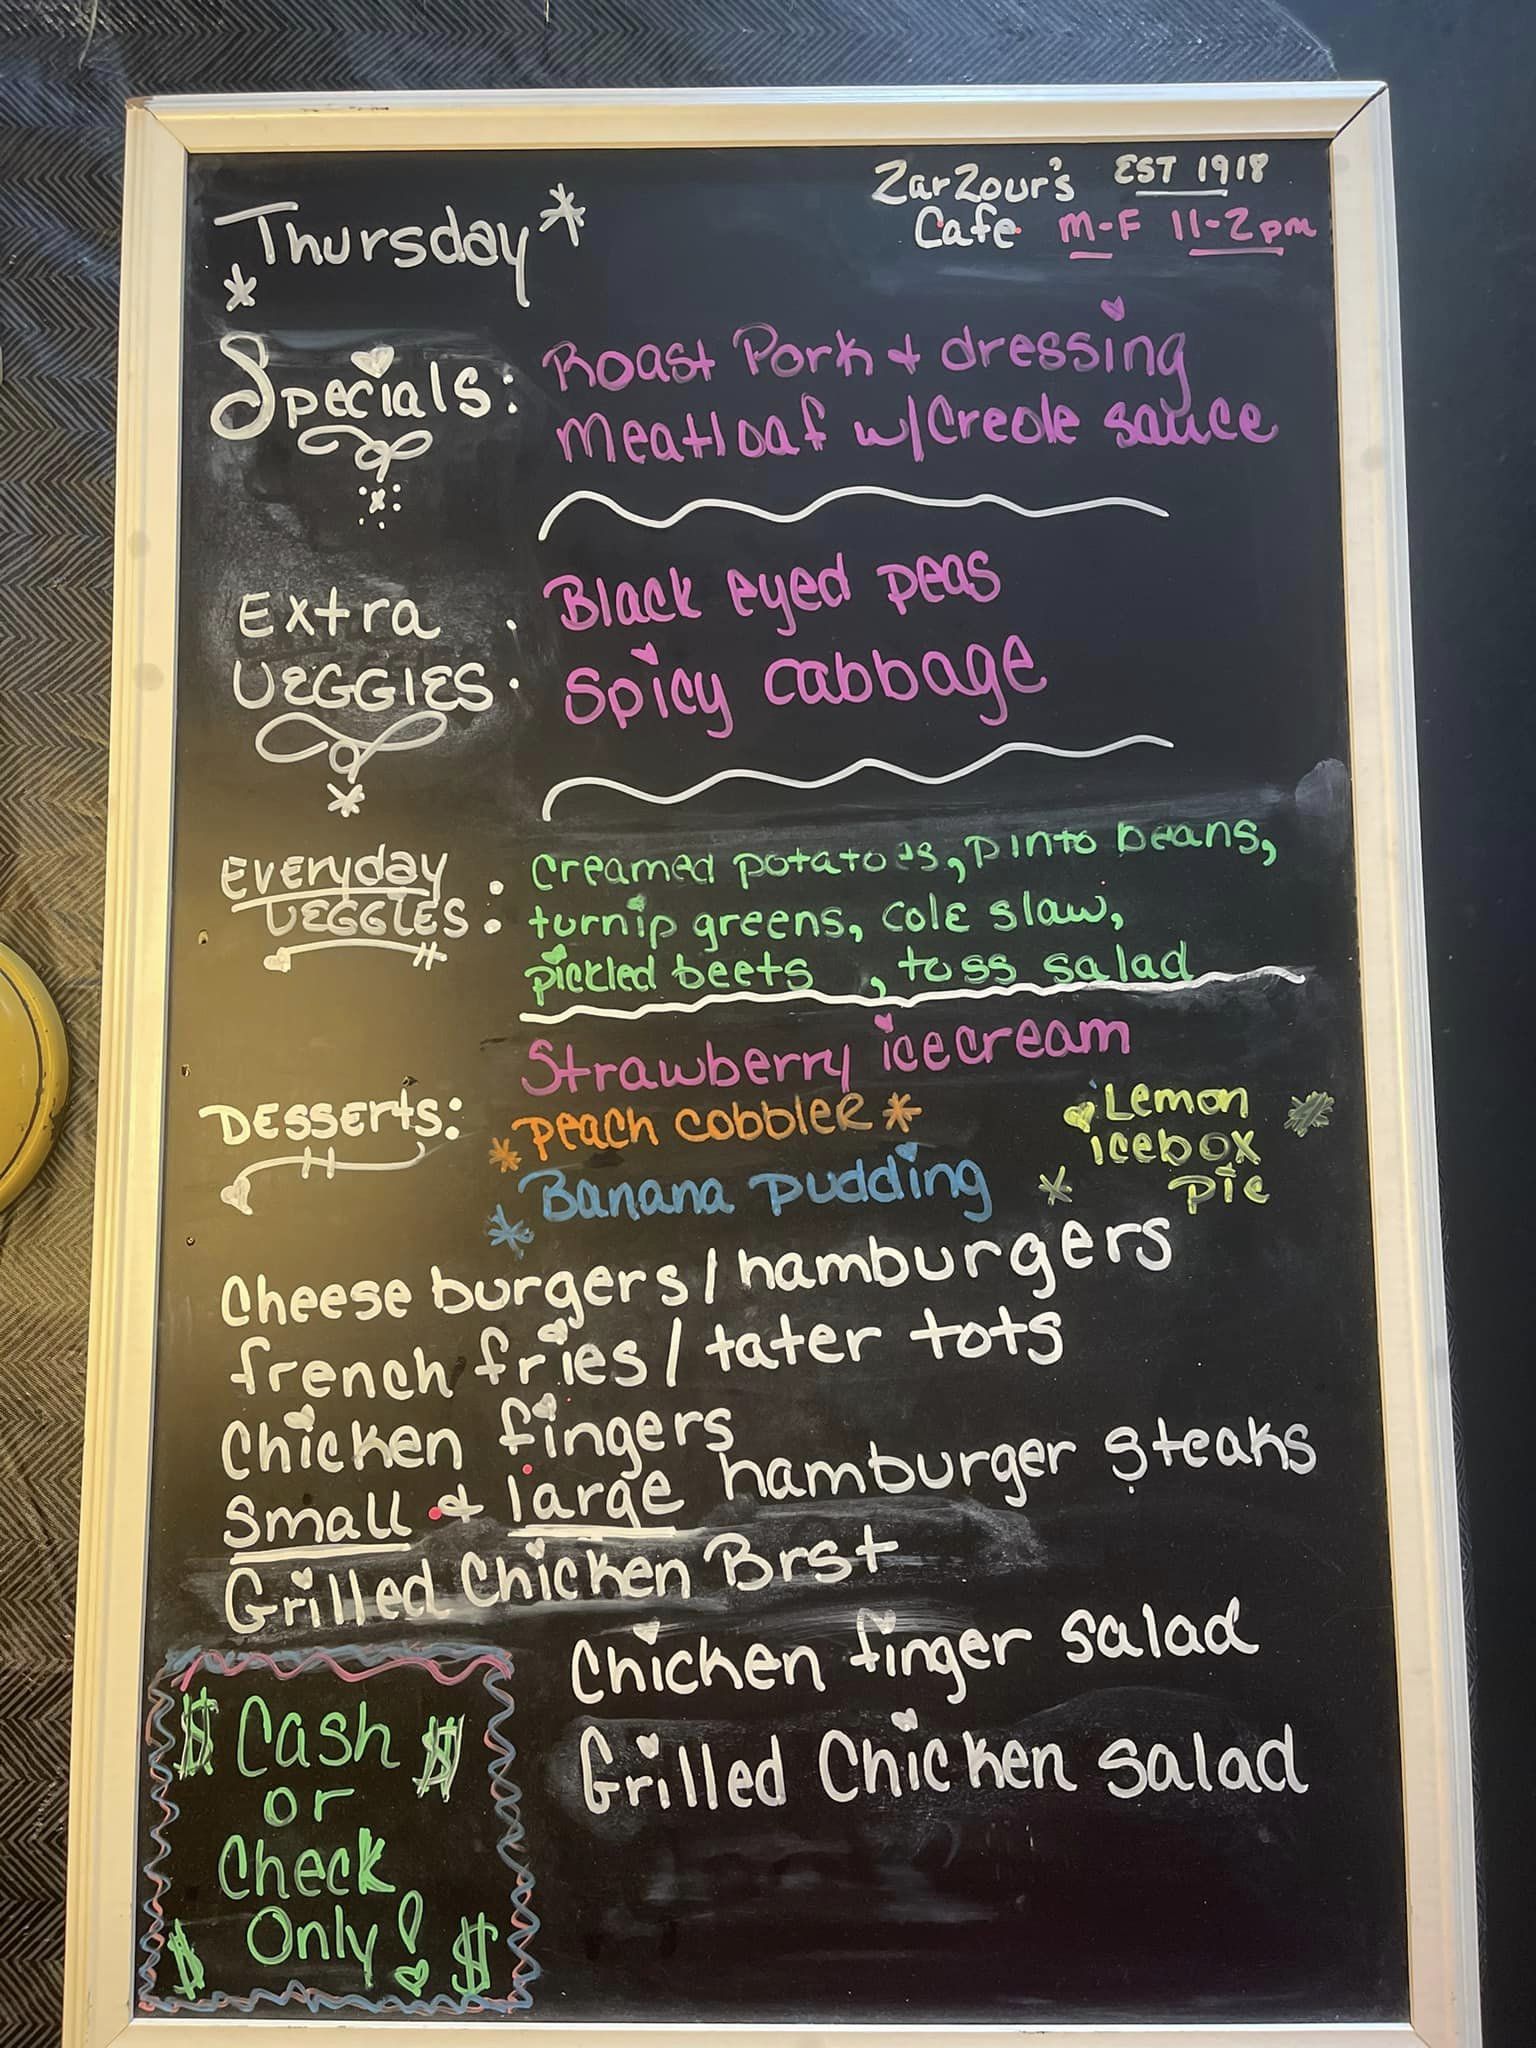 Thursday
ZarZour's EST 1918
Cafe M-F 11-2pm
Specials:
Roast Pork + dressing
Meatloaf w/Creole sauce
Extra
VEGGIES:
Black eyed peas
Spicy cabbage
Everyday
VEGGIES:
Creamed potatoes, pinto beans,
turnip greens, cole slaw,
pickled beets , toss salad
Desserts:
Strawberry icecream
peach cobbler
Banana pudding
Lemon
icebox
pie
Cheese burgers / hamburgers
french fries / tater tots
Chicken fingers
Small & large hamburger steaks
Grilled Chicken Brst
Chicken finger salad
Grilled Chicken salad
$ Cash $
or
Check
$ Only! $